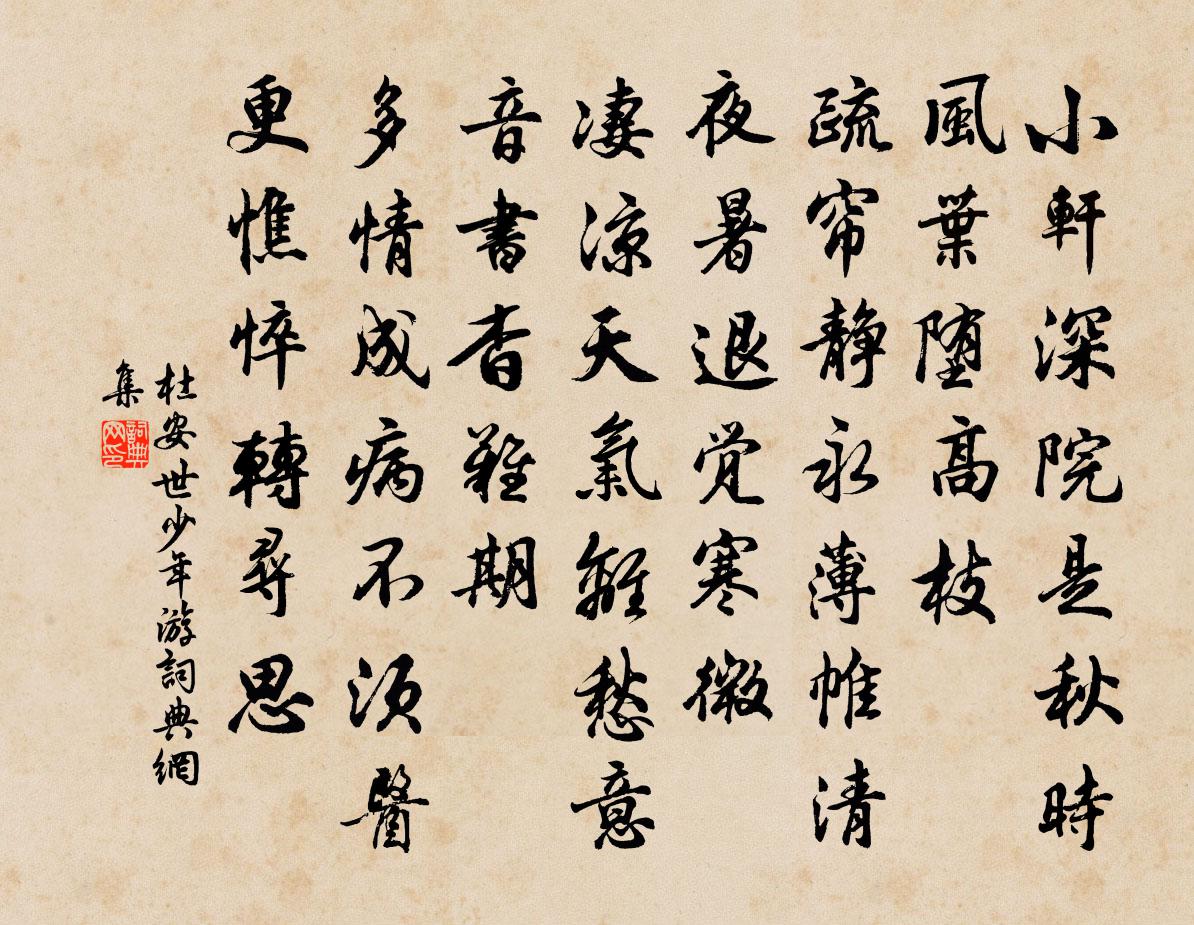 小軒深院是秋時
風葉墮高枝
疏帘靜永薄帷清
夜暑退覺寒微
凄涼天氣離愁意
音書杳難期
多情成病不須醫
更憔悴轉尋思
杜安世少年游詞典網
集
詞典
网印